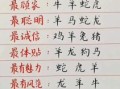 最顾家 牛羊蛇虎
最聪明 羊马蛇龙
最诚信 鸡羊兔猪
最体贴 羊龙狗马
最有魅力 蛇虎羊
最有风度 龙羊牛